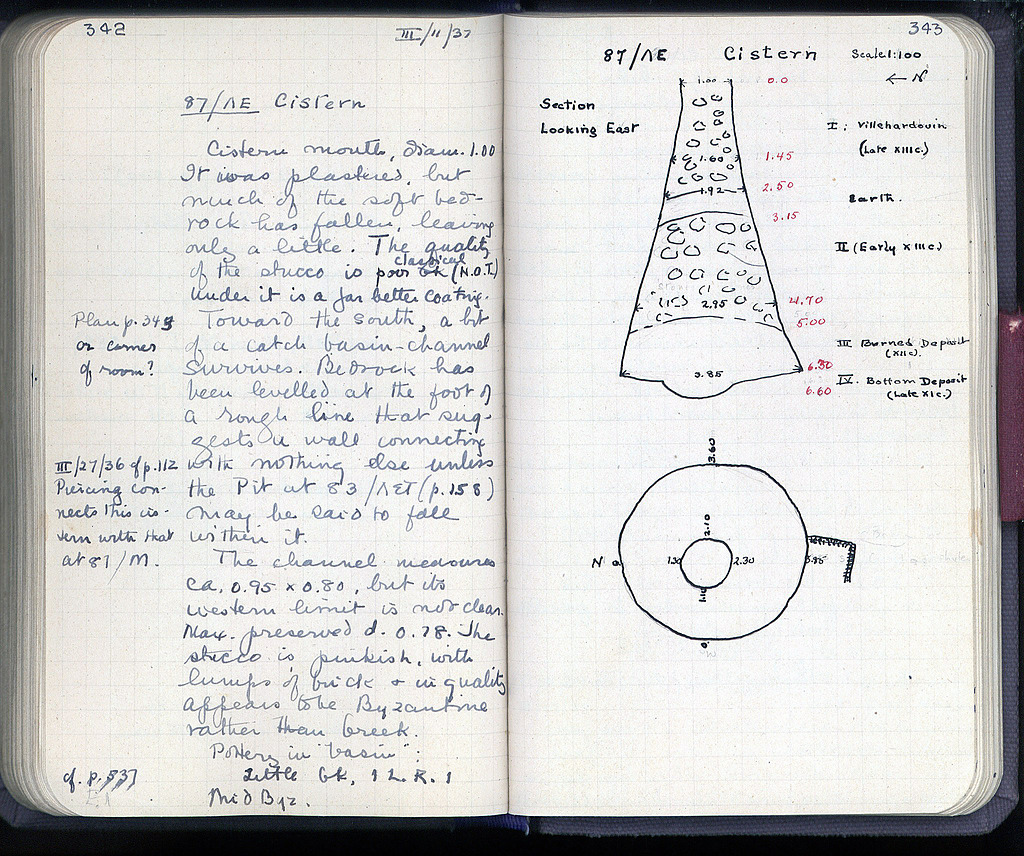 342
III/11/37
87/ΛE Cistern
Cistern mouth, diam. 1.00
It was plastered, but
much of the soft bed-
rock has fallen, leaving
only a little. The quality
classical
of the stucco is poor Gk (N.O.T.)
under it is a far better coating.
Toward the south, a bit
of a catch basin-channel
survives. Bedrock has
been levelled at the foot of
a rough line that sug-
gests a wall connecting
with nothing else unless
the Pit at 83/ΛΣΤ (p.158)
may be said to fall
within it.
The channel measures
ca. 0.95 x 0.80, but its
western limit is not clear.
Max. preserved d. 0.78. The
stucco is pinkish, with
lumps of brick + in quality
appears to be Byzantine
rather than Greek.
Pottery in "basin":
Little Gk, 1 L.R. 1
Mid Byz.
Plan p. 343
or corner
of room?
III/27/36 cf p.112
Piercing con-
nects this cis-
tern with that
at 87/M.
cf. p. 337
343
87/ΛE Cistern Scale 1:100
← N
Section
Looking East
1.00
0.0
1.60
1.45
1.92
2.50
3.15
2.95
4.70
5.00
3.85
6.30
6.60
I: Villehardouin
(Late XIIIc.)
Earth.
II (Early XIIIc.)
III Burned Deposit
(XIIc).
IV. Bottom Deposit
(Late XIc.)
3.60
2.10
N o
1.30
2.30
3.85
1.10
o